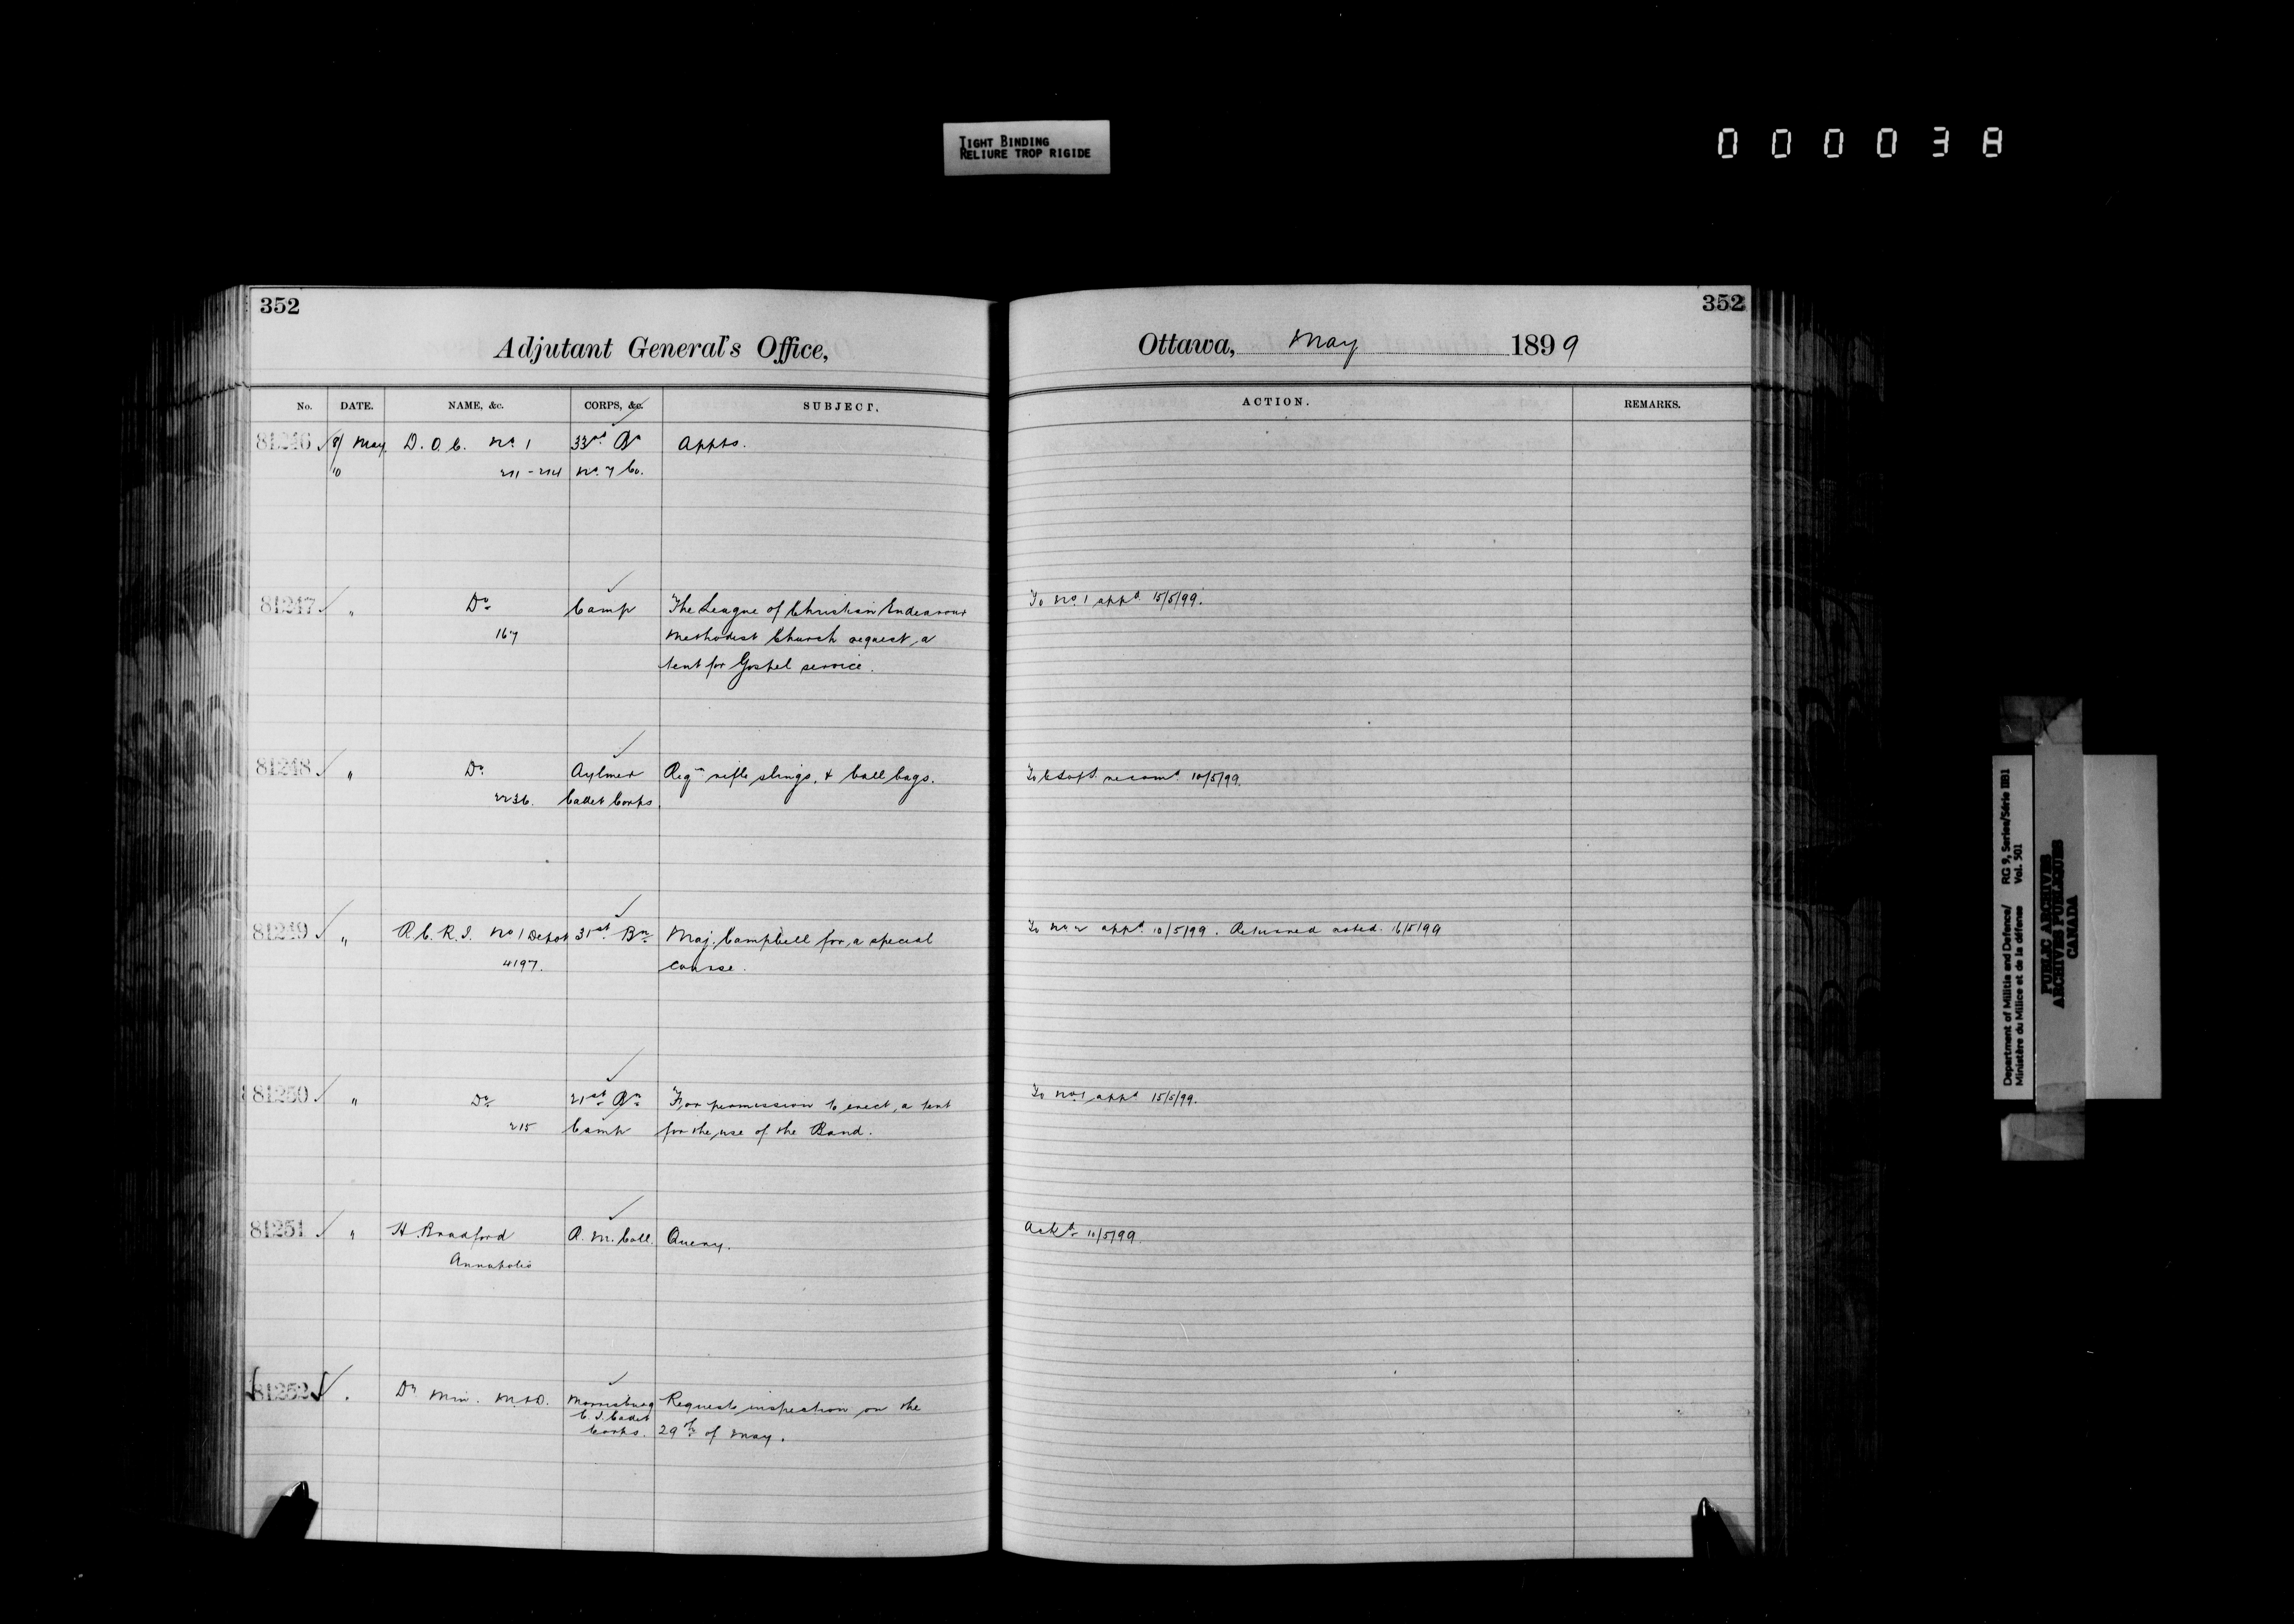 TIGHT BINDING
RELIURE TROP RIGIDE
000038
352
Adjutant General's Office,
No. DATE. NAME, &c. CORPS, &c. SUBJECT.
81246 8/ May D. O. C. No. 1 33rd Bn Appts.
10 211-214 No. 7 Co.
81247 " Do Camp The League of Christian Endeavour
167 Methodist Church request a
tent for Gospel service.
81248 " Do Aylmer Reqn rifle slings, & ball bags.
2236. Cadet Corps.
81249 " R. C. R. I. No 1 Depot 31st Bn Maj. Campbell for a special
4197. course.
81250 " Do 21st Bn For permission to erect a tent
215 Camp for the use of the Band.
81251 " H. Bradford R. M. Coll. Query.
Annapolis
81252 " Dy Min. M. & D. Morrisburg Requests inspection on the
C. I. Cadet
Corps. 29th of May.
352
Ottawa, May 1899
ACTION. REMARKS.
To No. 1 appd 15/5/99.
To C Supt. recomd. 10/5/99.
To No. 2 appd. 10/5/99. Returned noted. 16/5/99
To No. 1 appd 15/5/99.
Ackd 10/5/99.
Department of Militia and Defence/ RG 9, Series/Série IIB1
Ministère du Milice et de la défense Vol. 501
PUBLIC ARCHIVES
ARCHIVES PUBLIQUES
CANADA